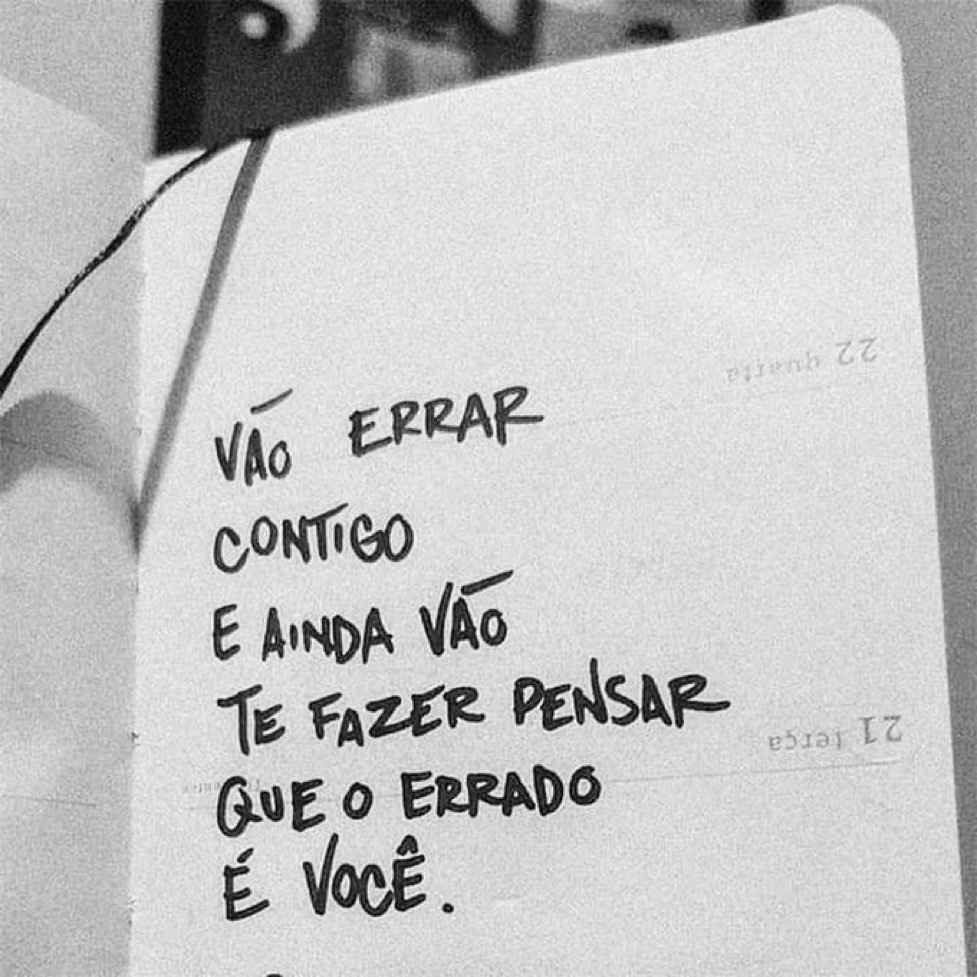 22 quarta
VÃO ERRAR
CONTIGO
E AINDA VÃO
TE FAZER PENSAR
21 terça
QUE O ERRADO
É VOCÊ.